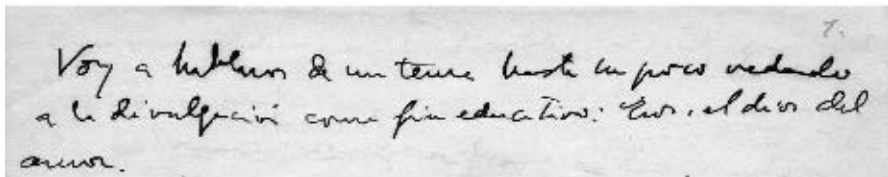 1.
Voy a hablaros de un tema hasta hace poco vedado
a la divulgación como fin educativo: Eros, el dios del
amor.